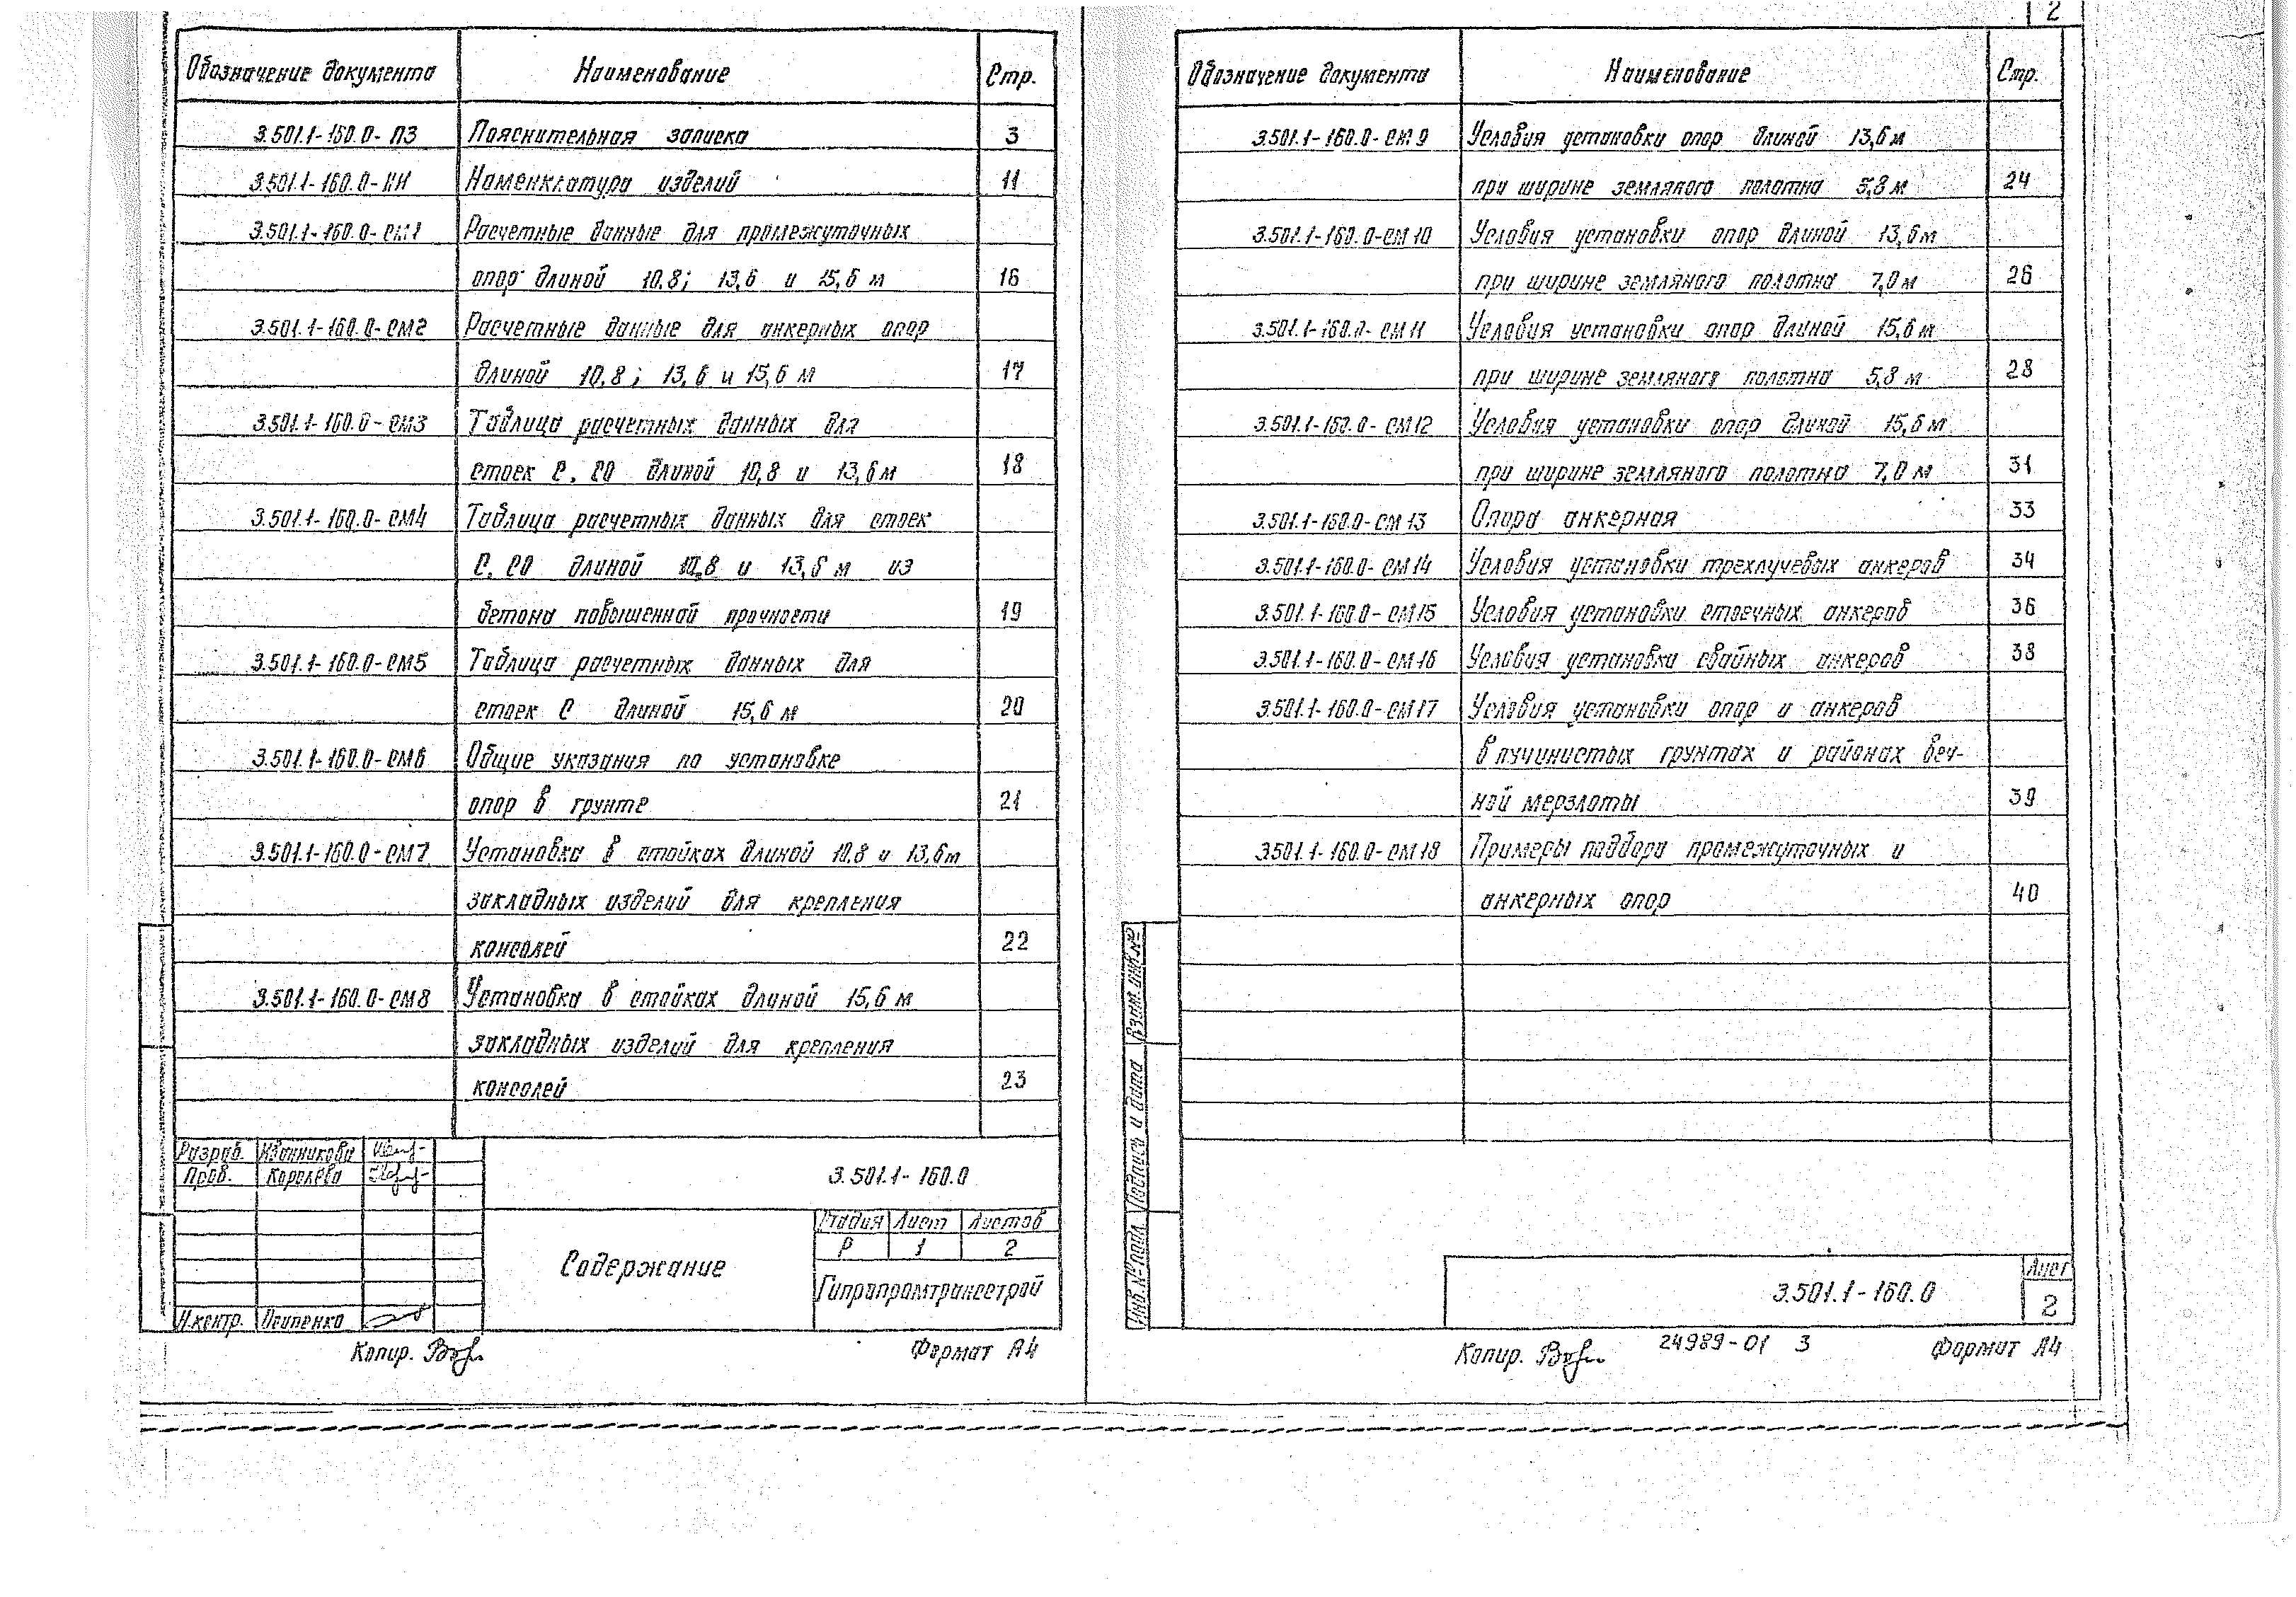 2
Обозначение документа Наименование Стр.
3.501.1-160.0-ПЗ Пояснительная записка 3
3.501.1-160.0-НИ Номенклатура изделий 11
3.501.1-160.0-СМ1 Расчетные данные для промежуточных
опор длиной 10,8; 13,6 и 15,6 м 16
3.501.1-160.0-СМ2 Расчетные данные для анкерных опор
длиной 10,8; 13,6 и 15,6 м 17
3.501.1-160.0-СМ3 Таблица расчетных данных для
стоек С, СО длиной 10,8 и 13,6 м 18
3.501.1-160.0-СМ4 Таблица расчетных данных для стоек
С, СО длиной 10,8 и 13,6 м из
бетона повышенной прочности 19
3.501.1-160.0-СМ5 Таблица расчетных данных для
стоек С длиной 15,6 м 20
3.501.1-160.0-СМ6 Общие указания по установке
опор в грунте 21
3.501.1-160.0-СМ7 Установка в стойках длиной 10,8 и 13,6 м
закладных изделий для крепления
консолей 22
3.501.1-160.0-СМ8 Установка в стойках длиной 15,6 м
закладных изделий для крепления
консолей 23
Разраб. Иванникова
Пров. Королёва
Н.контр. Осипенко
3.501.1-160.0
Содержание
Стадия Лист Листов
Р 1 2
Гипропромтрансстрой
Копир. Формат А4
Обозначение документа Наименование Стр.
3.501.1-160.0-СМ9 Условия установки опор длиной 13,6 м
при ширине земляного полотна 5,8 м 24
3.501.1-160.0-СМ10 Условия установки опор длиной 13,6 м
при ширине земляного полотна 7,0 м 26
3.501.1-160.0-СМ11 Условия установки опор длиной 15,6 м
при ширине земляного полотна 5,8 м 28
3.501.1-160.0-СМ12 Условия установки опор длиной 15,6 м
при ширине земляного полотна 7,0 м 31
3.501.1-160.0-СМ13 Опора анкерная 33
3.501.1-160.0-СМ14 Условия установки трехлучевых анкеров 34
3.501.1-160.0-СМ15 Условия установки стоечных анкеров 36
3.501.1-160.0-СМ16 Условия установки свайных анкеров 38
3.501.1-160.0-СМ17 Условия установки опор и анкеров
в пучинистых грунтах и районах веч-
ной мерзлоты 39
3.501.1-160.0-СМ18 Примеры подбора промежуточных и
анкерных опор 40
Взам. инв. №
Подпись и дата
Инв. № подл.
3.501.1-160.0
Лист
2
Копир. 24989-01 3 Формат А4